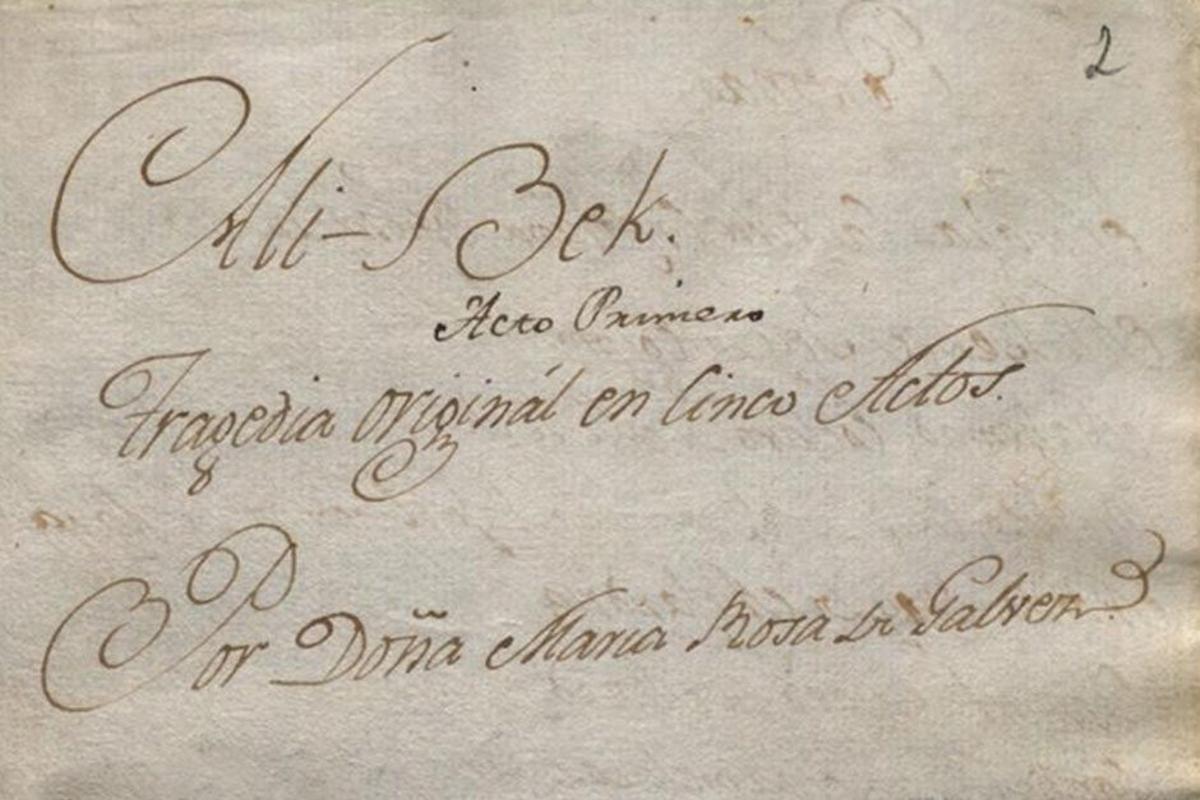 2
Ali-Bek.
Acto Primero
Tragedia originál en Cinco Actos.
Por Doña Maria Rosa de Galvez.